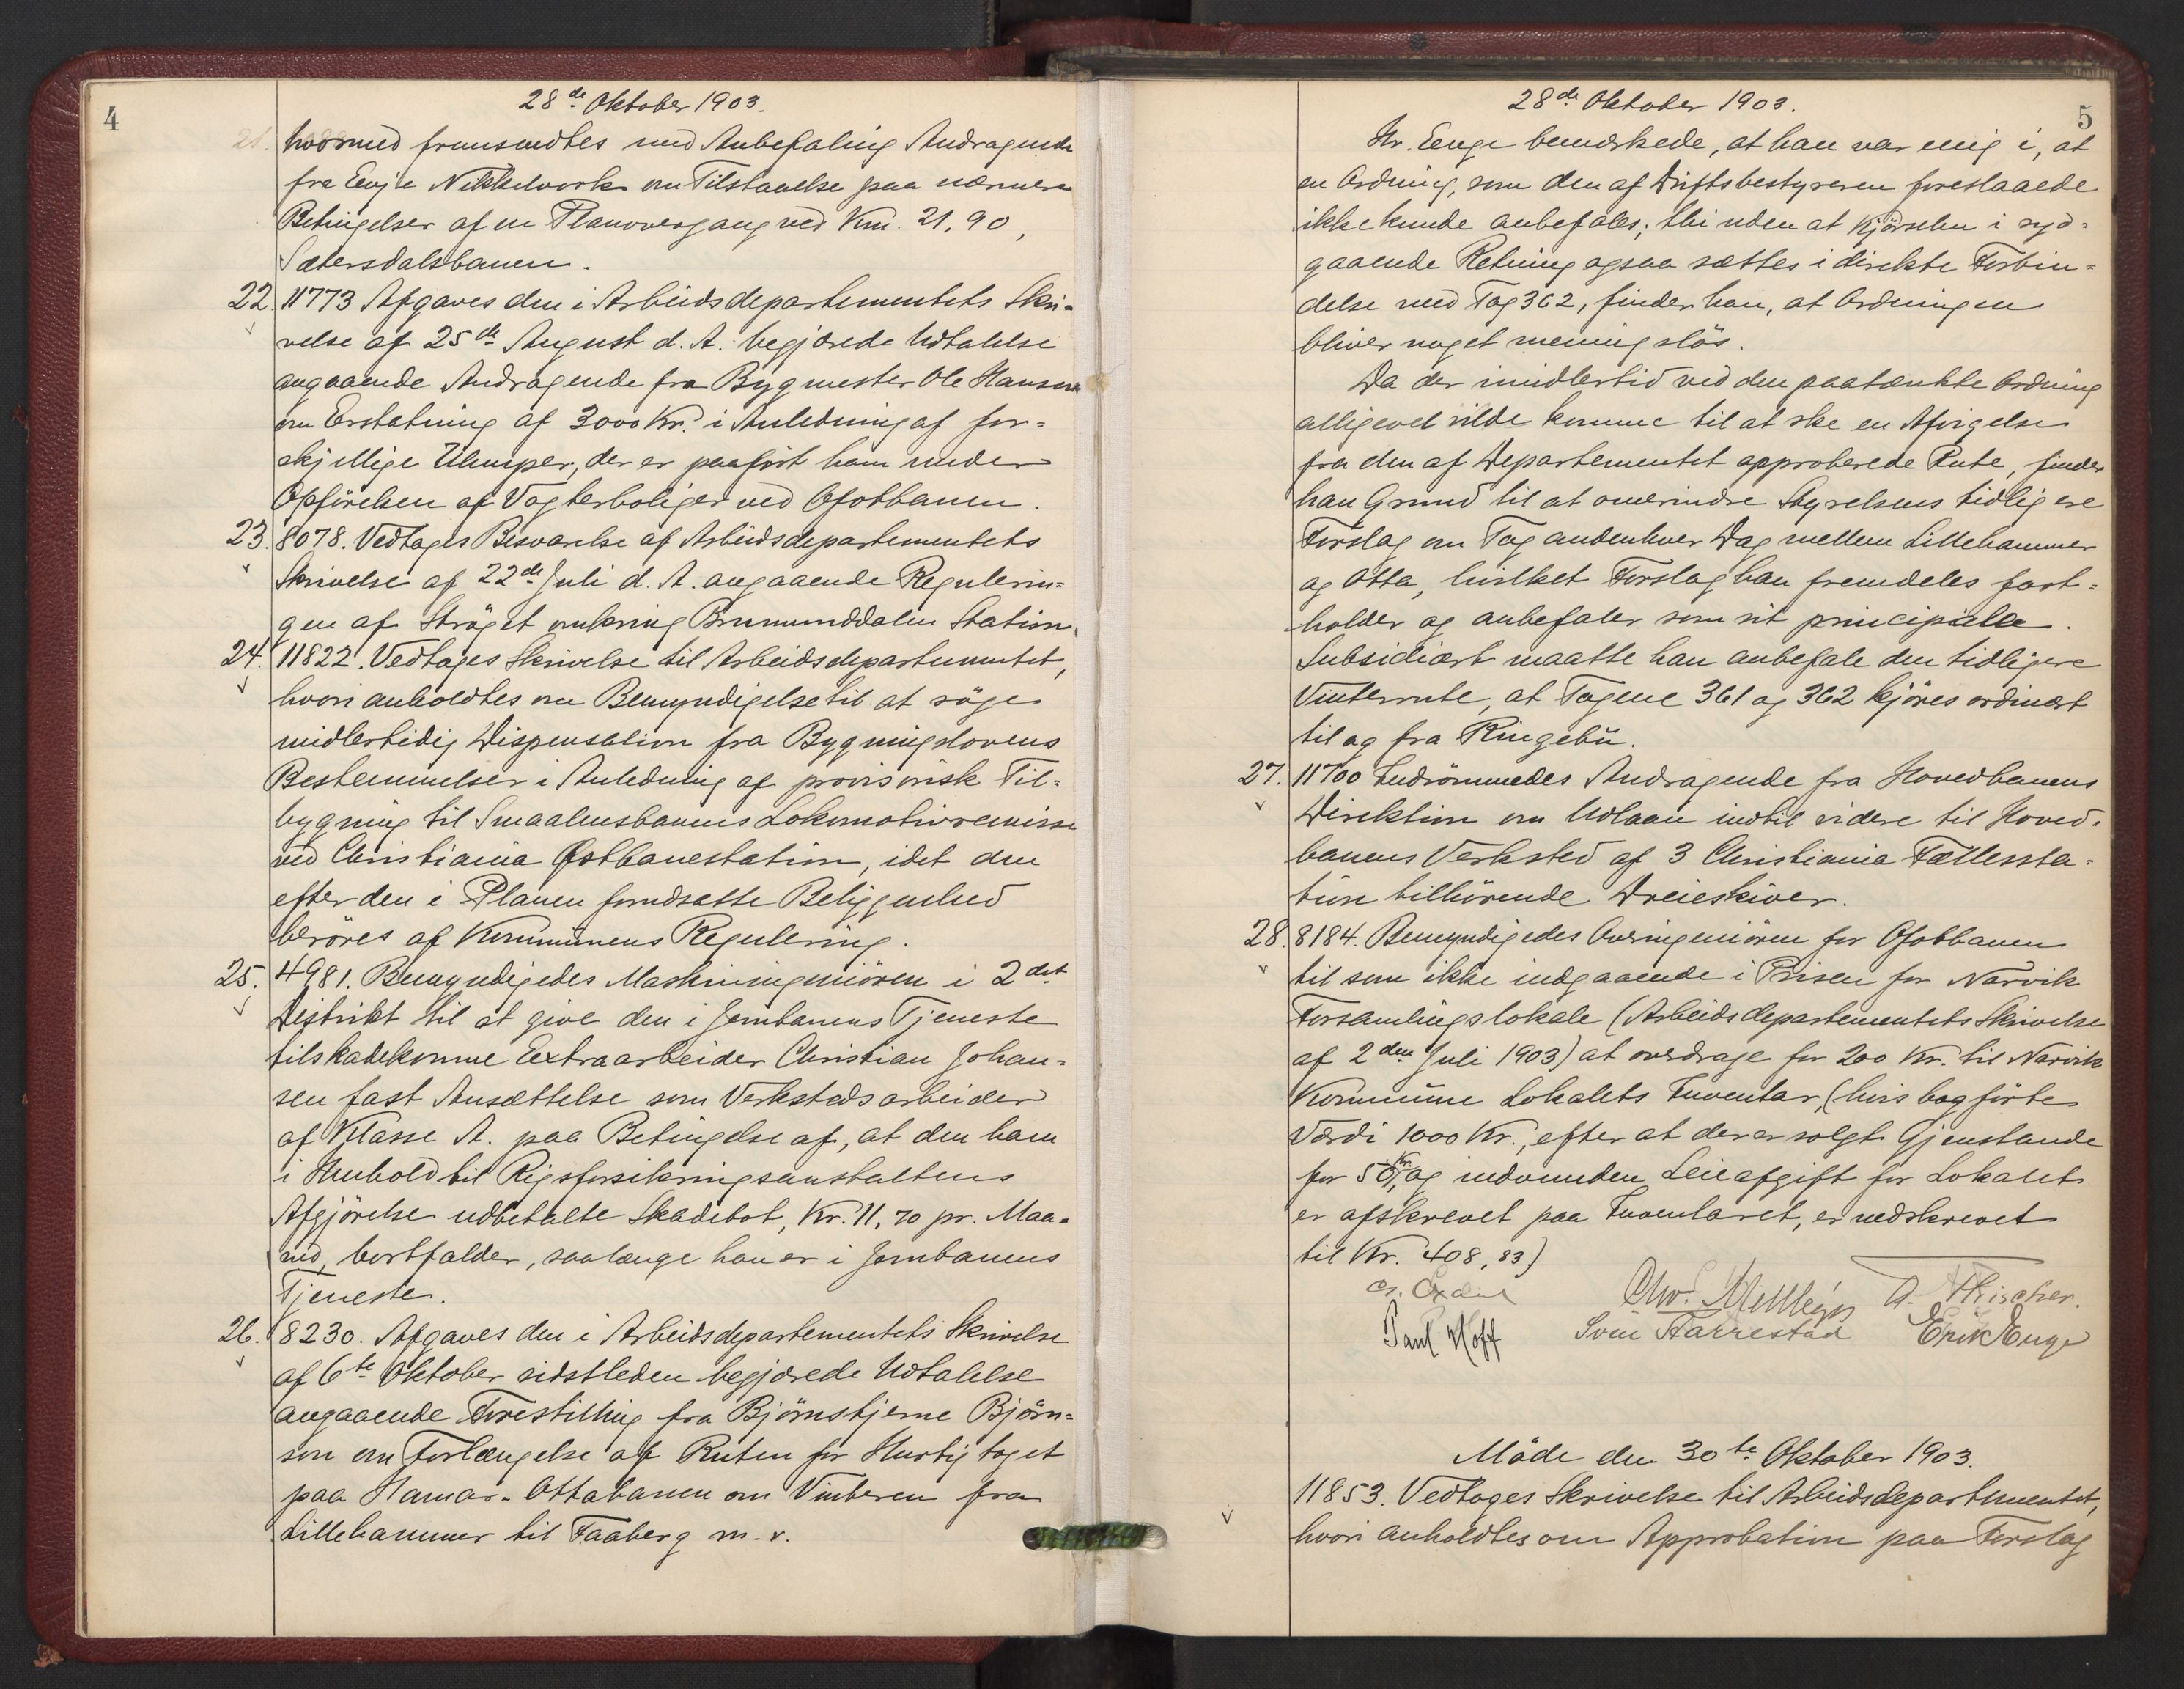 4
28de Oktober 1903.
21. hvormed fremsendtes med Anbefaling Andragende
fra Evje Nikkelverk om Tilstaaelse paa nærmere
Betingelser af en Planovergang ved Km. 21,90,
Sætersdalsbanen.
22. 11773 Afgaves den i Arbeidsdepartementets Skri-
velse af 25de August d. A. begjærede Udtalelse
angaaende Andragende fra Bygmester Ole Hansen
om Erstatning af 3000 Kr. i Anledning af for-
skjellige Ulemper, der er paaført ham under
Opførelsen af Vogterboliger ved Ofotbanen.
23. 8078. Vedtages Besvarelse af Arbeidsdepartementets
Skrivelse af 22de Juli d. A. angaaende Regulerin-
gen af Strøget omkring Brumunddalen Station.
24. 11822. Vedtages Skrivelse til Arbeidsdepartementet,
hvori anholdtes om Bemyndigelse til at søge
midlertidig Dispensation fra Bygningslovens
Bestemmelser i Anledning af provisorisk Til-
bygning til Smaalensbanens Lokomotivremisse
ved Christiania Østbanestation, idet den
efter den i Planen forudsatte Beliggenhed
berøres af Kommunens Regulering.
25. 4981. Bemyndigedes Maskiningeniøren i 2det
Distrikt til at give den i Jernbanens Tjeneste
tilskadekomne Extraarbeider Christian Johan-
sen fast Ansættelse som Verkstedsarbeider
af Klasse A. paa Betingelse af, at den ham
i Henhold til Rigsforsikringsanstaltens
Afgjørelse udbetalte Skadebot, Kr. 11,70 pr. Maa-
ned, bortfalder, saalænge han er i Jernbanens
Tjeneste.
26. 8230. Afgaves den i Arbeidsdepartementets Skrivelse
af 6te Oktober sidstleden begjærede Udtalelse
angaaende Forestilling fra Bjørnstjerne Bjørn-
son om Forlængelse af Ruten for Hurtigtoget
paa Hamar-Ottabanen om Vinteren fra
Lillehammer til Faaberg m. v.
5
28de Oktober 1903.
Hr. Enge bemærkede, at han var enig i, at
en Ordning, som den af Driftsbestyreren foreslaaede
ikke kunde anbefales; thi uden at Kjørselen i syd-
gaaende Retning ogsaa sættes i direkte Forbin-
delse med Tog 362, finder han, at Ordningen
bliver noget meningsløs.
Da der imidlertid ved den paatænkte Ordning
alligevel vilde komme til at ske en Afvigelse
fra den af Departementet approberede Rute, finder
han Grund til at omerindre Styrelsens tidligere
Forslag om Tog andenhver Dag mellem Lillehammer
og Otta, hvilket Forslag han fremdeles fast-
holder og anbefaler som sit principielle.
Subsidiært maatte han anbefale den tidligere
Vinterrute, at Togene 361 og 362 kjøres ordinært
til og fra Ringebu.
27. 11700 Indrømmedes Andragende fra Hovedbanens
Direktion om Udlaan indtil videre til Hoved-
banens Verksted af 3 Christiania Fællessta-
tion tilhørende Dreieskiver.
28. 8184. Bemyndigedes Overingeniøren for Ofotbanen
til som ikke indgaaende i Prisen for Narvik
Forsamlingslokale (Arbeidsdepartementets Skrivelse
af 2den Juli 1903) at overdrage for 200 Kr. til Narvik
Kommune Lokalets Inventar, (hvis bogførte
Værdi 1000 Kr., efter at der er solgt Gjenstande
for 50 Kr., og indvunden Leieafgift for Lokalet
er afskrevet paa Inventaret, er nedskrevet
til Kr. 408,83)
Chr. Mellbye A. Fischer.
Paul Hoff Svein Aarrestad Erik Enge
Møde den 30te Oktober 1903.
11853. Vedtoges Skrivelse til Arbeidsdepartementet,
hvori anholdtes om Approbation paa Forslag